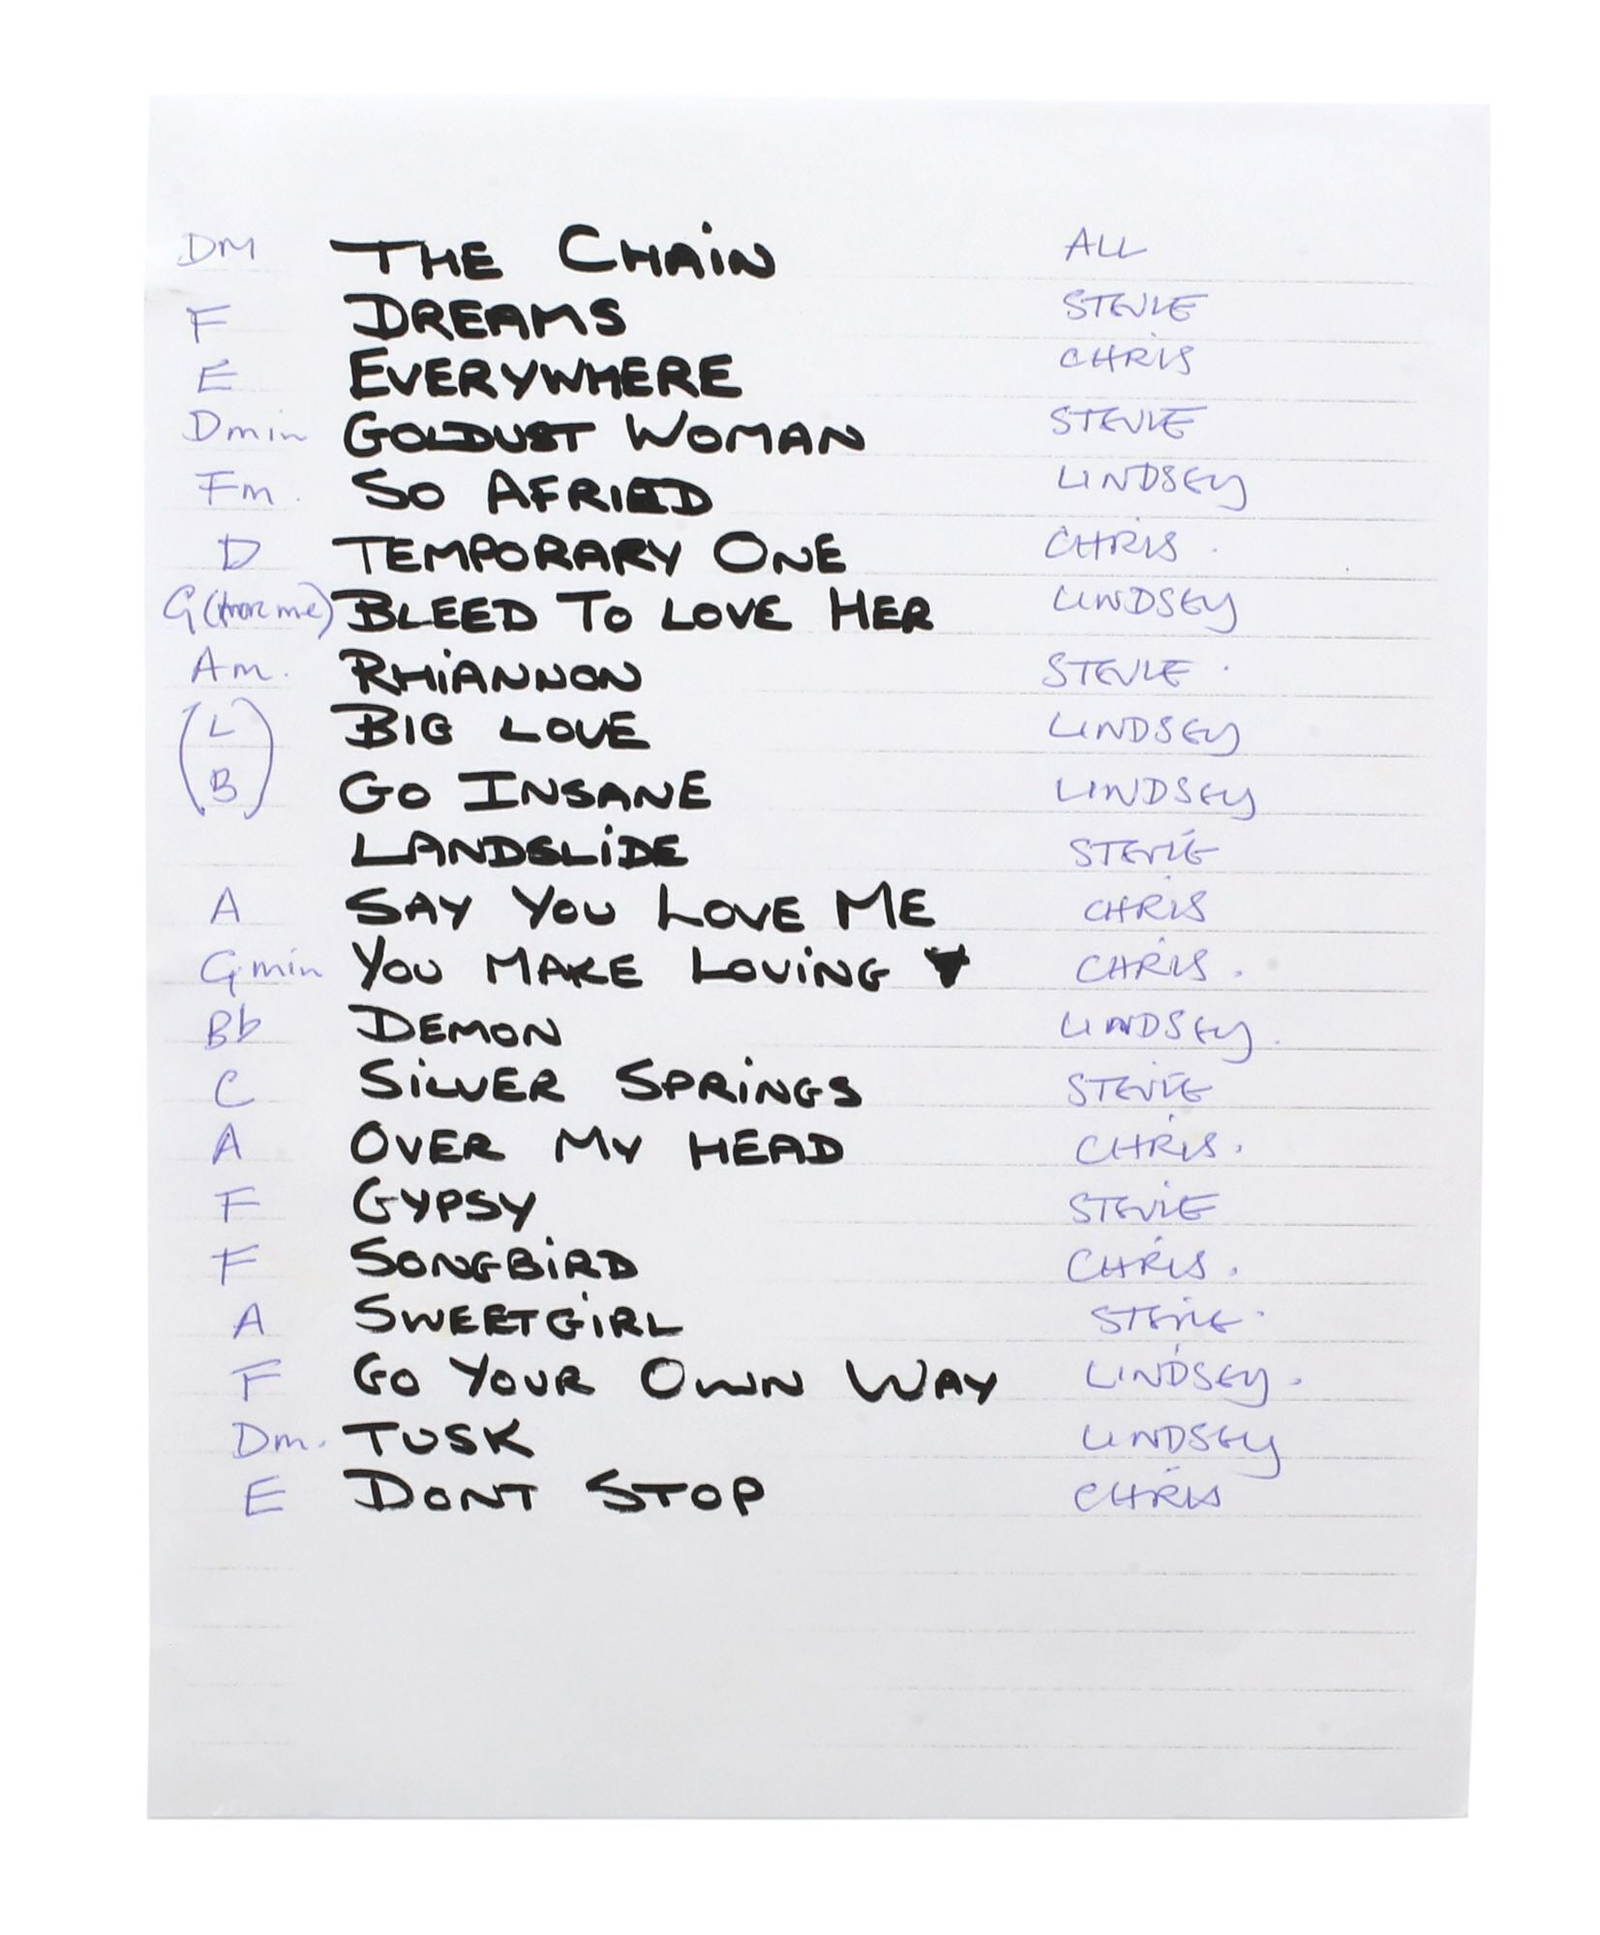 DM THE CHAIN ALL
F DREAMS STEVIE
E EVERYWHERE CHRIS
Dmin GOLDUST WOMAN STEVIE
Fm. SO AFRIED LINDSEY
D TEMPORARY ONE CHRIS.
G ( me) BLEED TO LOVE HER LINDSEY
Am. RHIANNON STEVIE.
(L BIG LOVE LINDSEY
B) GO INSANE LINDSEY
LANDSLIDE STEVIE
A SAY YOU LOVE ME CHRIS
Gmin YOU MAKE LOVING CHRIS.
Bb DEMON LINDSEY.
C SILVER SPRINGS STEVIE
A OVER MY HEAD CHRIS.
F GYPSY STEVIE
F SONGBIRD CHRIS.
A SWEETGIRL STEVIE.
F GO YOUR OWN WAY LINDSEY.
Dm. TUSK LINDSEY
E DONT STOP CHRIS